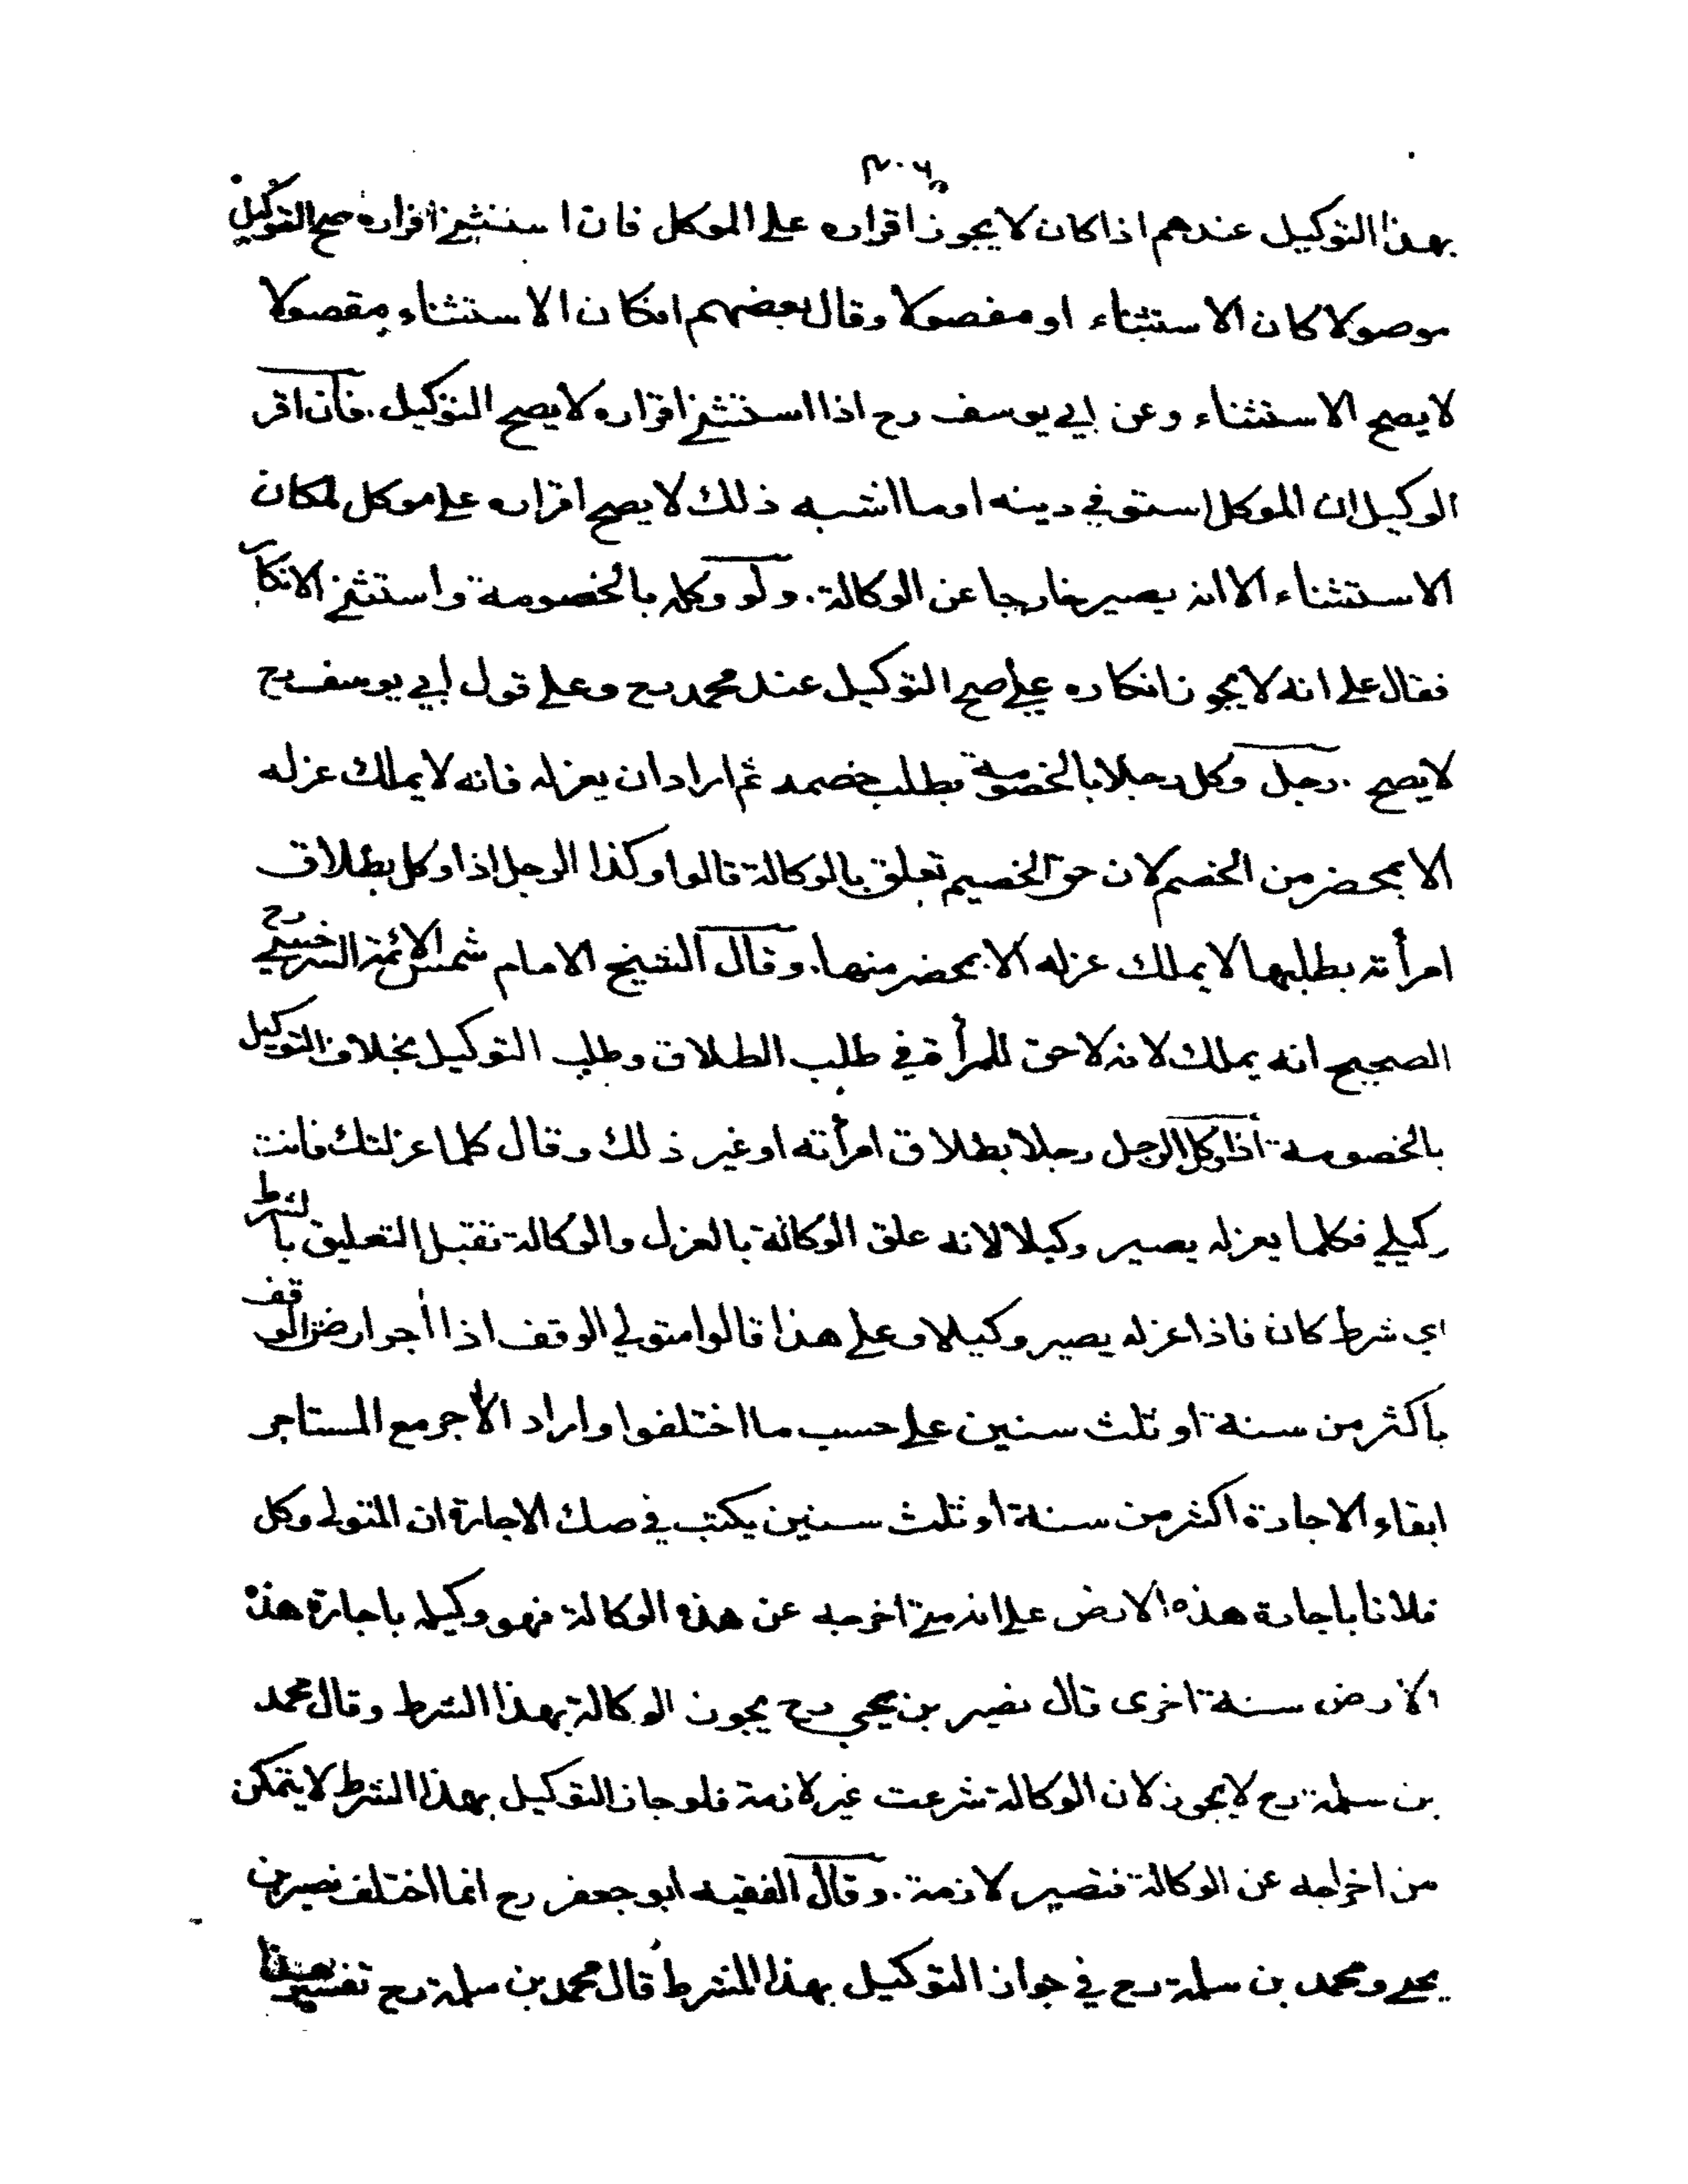 بهذا التوكيل عندهم اذا كان لا يجوز اقراره على الموكل فان استثنى اقراره صح التوكيل
موصولا كان الاستثناء او مفصولا وقال بعضهم ان كان الاستثناء مفصولا
لا يصح الاستثناء وعن ابي يوسف رح اذا استثنى اقراره لا يصح التوكيل . فان اقر
الوكيل ان الموكل استوفي دينه او ما اشبه ذلك لا يصح اقراره على موكل لمكان
الاستثناء الا انه يصير خارجا عن الوكالة . ولو وكله بالخصومة واستثنى الانكار
فقال على انه لا يجوز انكاره علي صح التوكيل عند محمد رح وعلى قول ابي يوسف رح
لا يصح . رجل وكل رجلا بالخصومة بطلب خصمه ثم اراد ان يعزله فانه لا يملك عزله
الا بمحضر من الخصم لان حق الخصيم تعلق بالوكالة قالوا وكذا الرجل اذا وكل بطلاق
امرأته بطلبها لا يملك عزله الا بمحضر منها . وقال الشيخ الامام شمس الائمة السرخسي رح
الصحيح انه يملك لانه لا حق للمرأة في طلب الطلاق وطلب التوكيل بخلاف التوكيل
بالخصومة اذا وكل الرجل رجلا بطلاق امرأته او غير ذلك وقال كلما عزلتك فانت
وكيلي فكلما يعزله يصير وكيلا لانه علق الوكالة بالعزل والوكالة تقبل التعليق بالشرط
اي شرط كان فاذا عزله يصير وكيلا وعلى هذا قالوا متولي الوقف اذا أجر ارض الوقف
باكثر من سنة او ثلث سنين على حسب ما اختلفوا واراد الأجر مع المستاجر
ابقاء الاجارة اكثر من سنة او ثلث سنين يكتب في صك الاجارة ان المتولي وكل
فلانا باجارة هذه الارض على انه متى اخرجه عن هذه الوكالة فهو وكيله باجارة هذه
الارض سنة اخرى قال نصير بن يحيي رح يجوز الوكالة بهذا الشرط وقال محمد
بن سلمة رح لا يجوز لان الوكالة شرعت غير لازمة فلو جاز التوكيل بهذا الشرط لا يتمكن
من اخراجه عن الوكالة فتصير لازمة . وقال الفقيه ابو جعفر رح انما اختلف نصير بن
يحي ومحمد بن سلمة رح في جواز التوكيل بهذا الشرط قال محمد بن سلمة رح تفسير